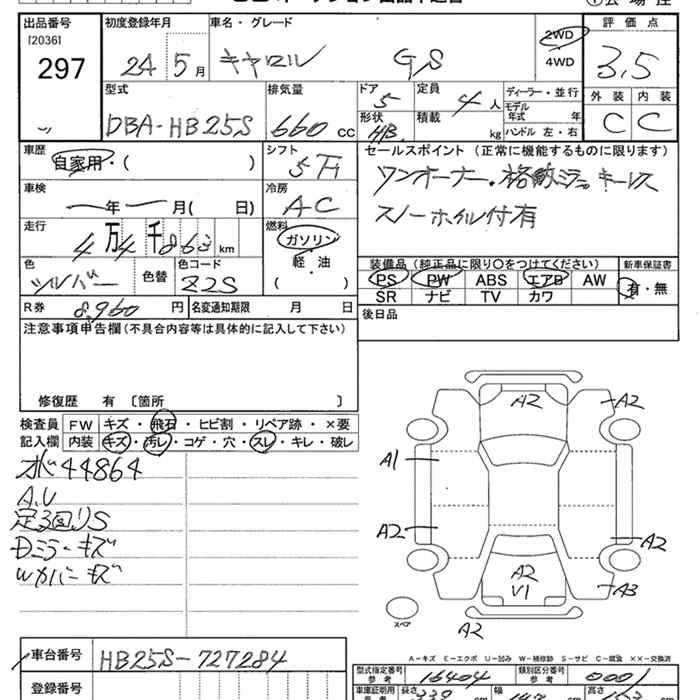 出品番号 初度登録年月 車名・グレード 評価点
[2036]
297
24 5月 キャロル GS 2WD 4WD 3,5
型式 排気量 ドア 定員 ディーラー・並行 外装 内装
DBA-HB25S 660cc 5 4人 モデル年式 年 C C
形状 HB. 積載 kg ハンドル 左・右
車歴 シフト セールスポイント (正常に機能するものに限ります)
自家用・( ) 5F1 ワンオーナー・格納ミラー キーレス
車検 冷房 スノーホイル付有
年 月(日) AC
走行 燃料
4万4千863km ガソリン
軽・油
( )
色 色替 色コード
シルバー Z2S
装備品(純正品に限り○をつけてください) 新車保証書
PS PW ABS エアB AW 有・無
SR ナビ TV カワ
R券 8,960円 名変通知期限 月 日 後日品
注意事項申告欄(不具合内容等は具体的に記入して下さい)
修復歴 有 〔箇所 〕
検査員 FW キズ・飛石・ヒビ割・リペア跡・×要
記入欄 内装 キズ・汚レ・コゲ・穴・スレ・キレ・破レ
44864
A.U
Dミラーキズ
Wカバーキズ
A2 A2
A1
A2 A2
A2
V1 A3
スペア A2
A-キズ E-エクボ U-凹み W-補修跡 S-サビ C-腐食 ××-交換済
車台番号 HB25S-727284
型式指定番号 参考 16404 類別区分番号 参考 0001
登録番号 車庫証明用 参考 長さ 339 幅 147 高さ